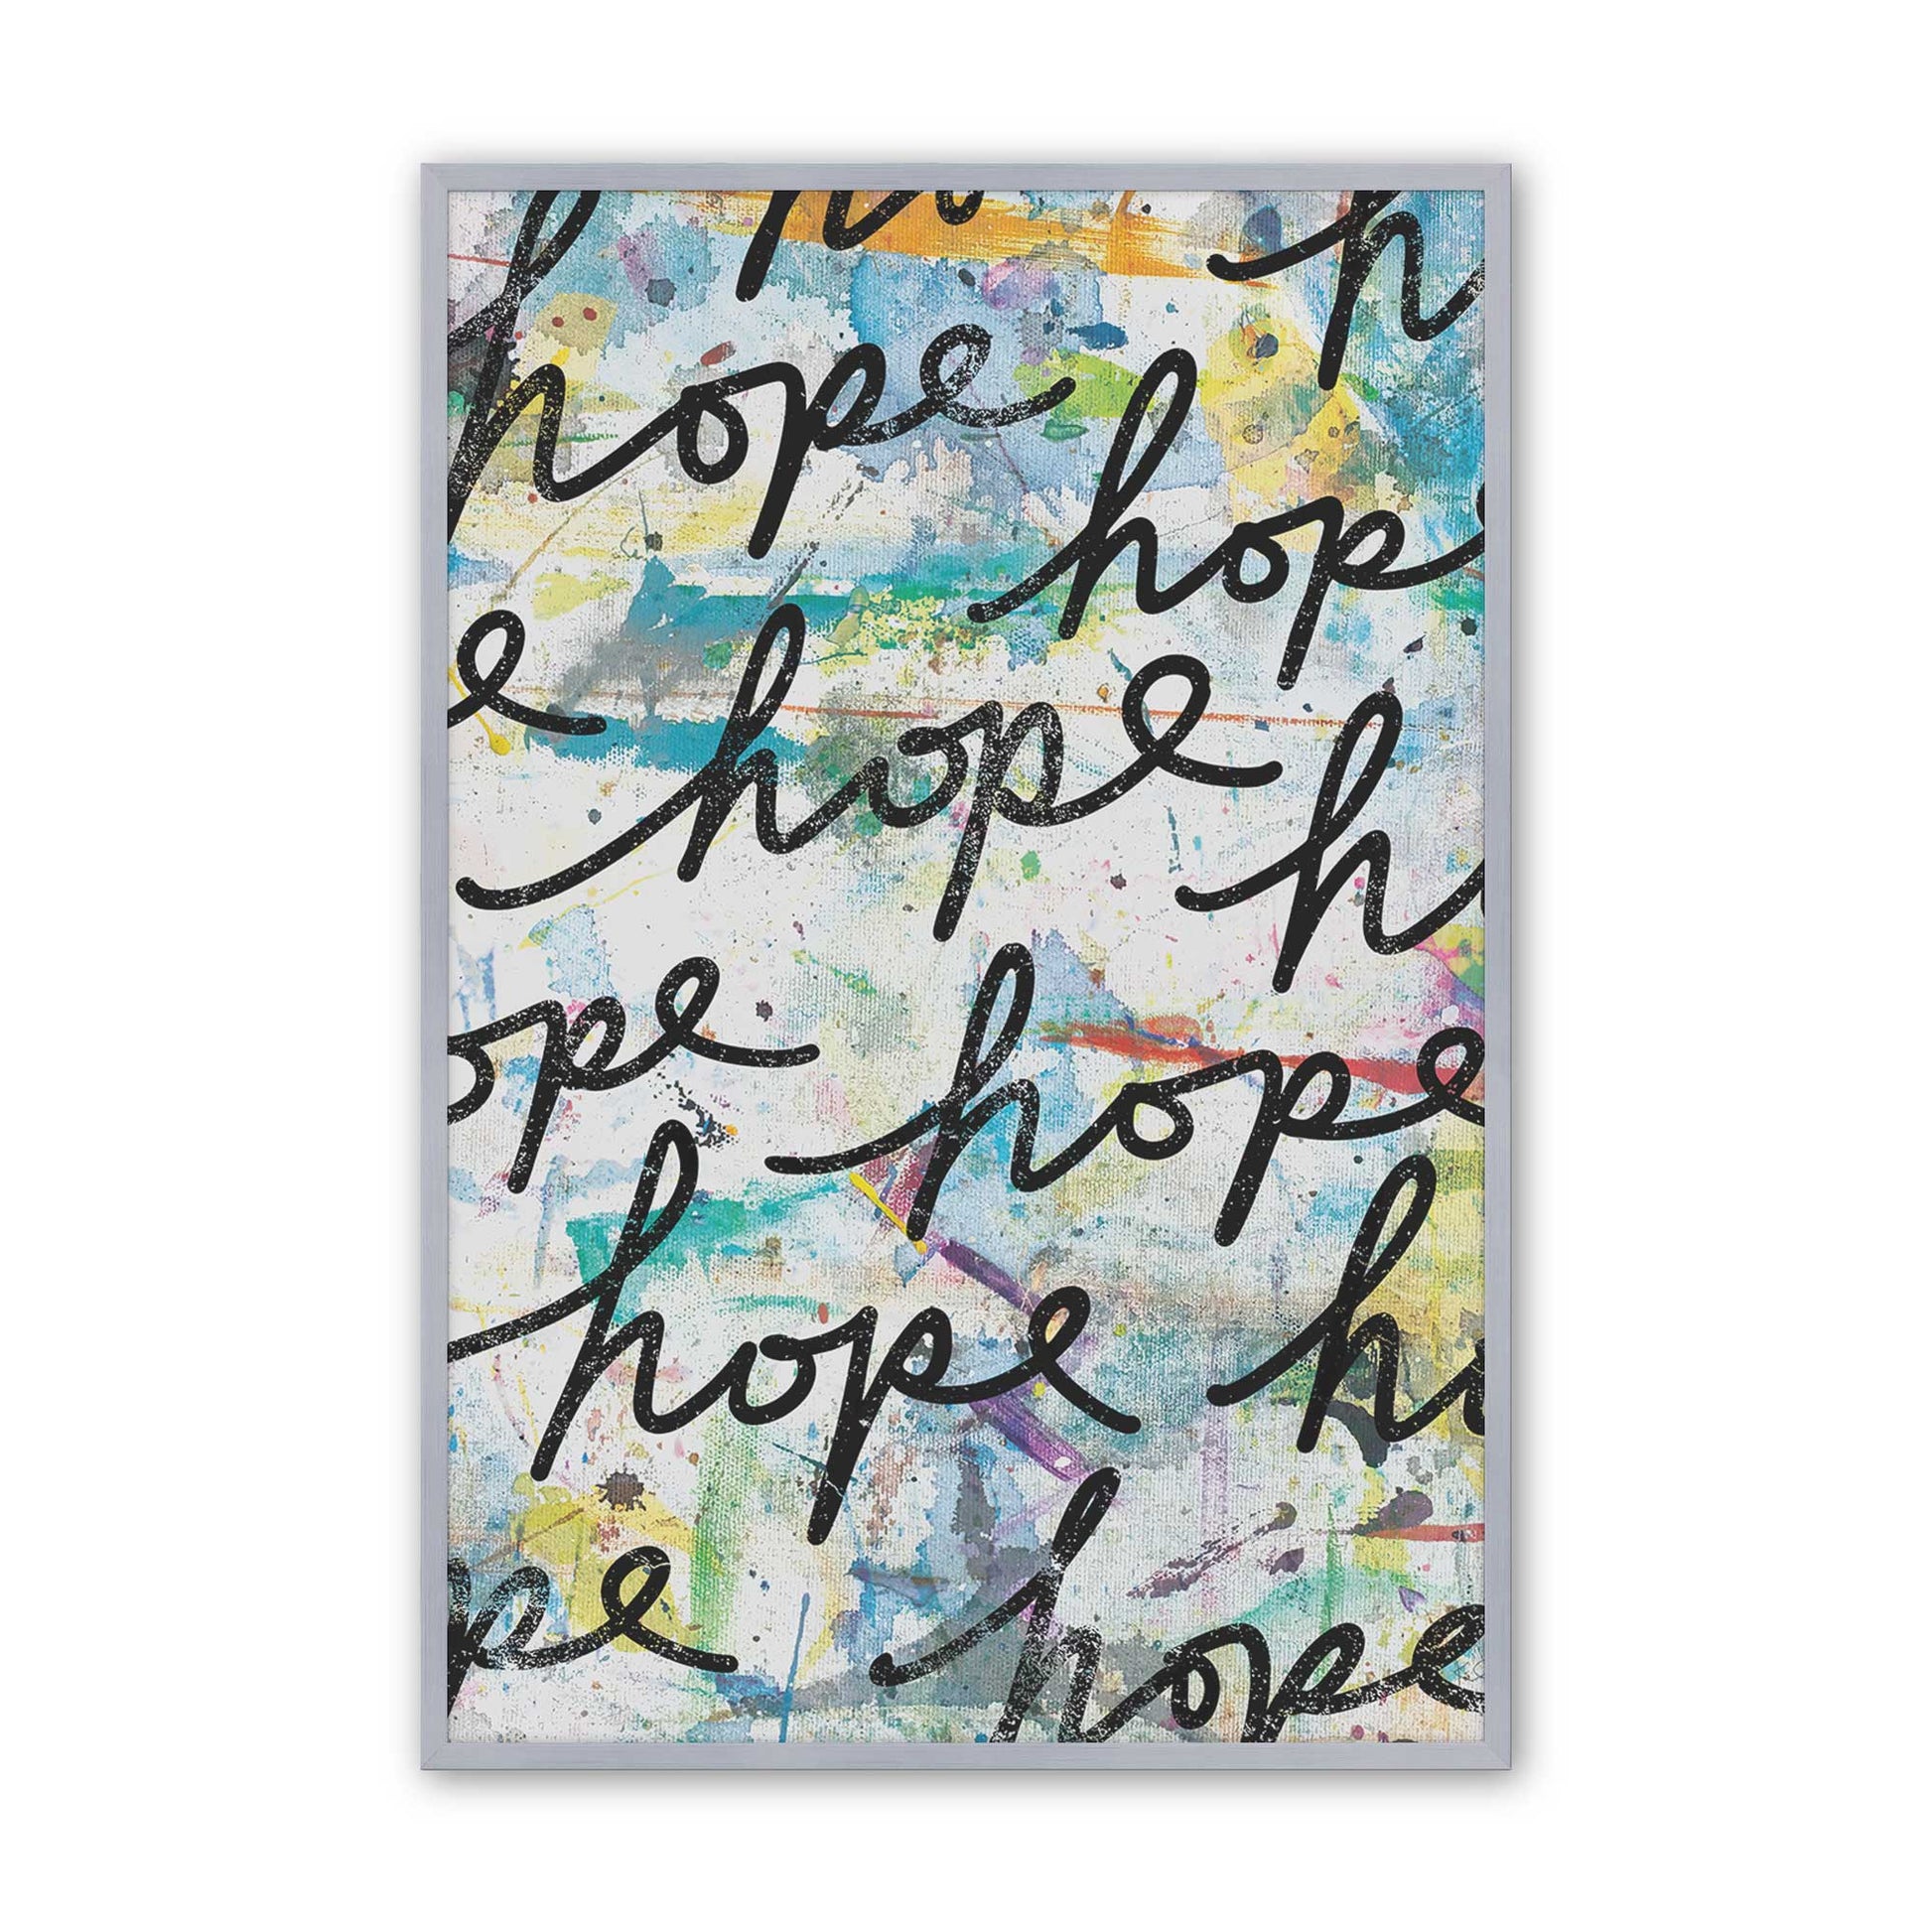 ho h
hope
hop
e hope
h
ope hope
hope
ho
pe hope